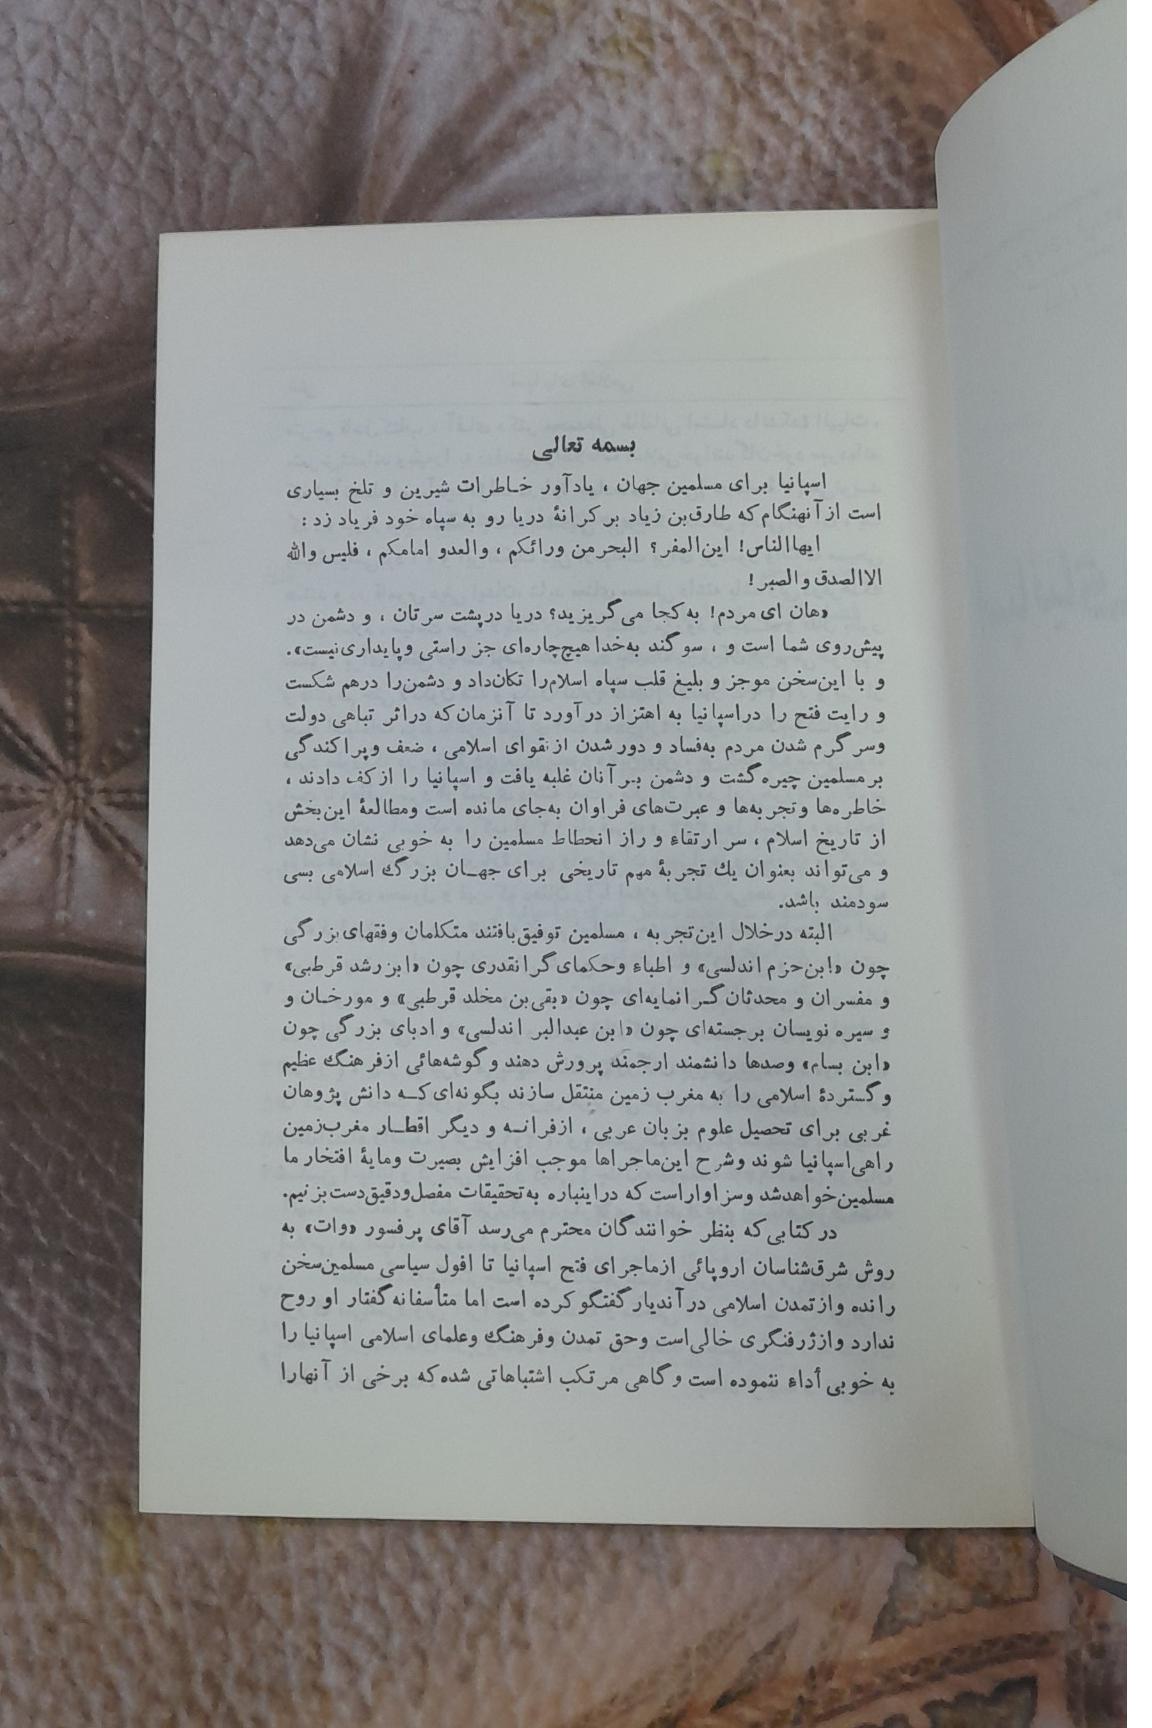 بسمه تعالی
اسپانیا برای مسلمین جهان ، یادآور خاطرات شیرین و تلخ بسیاری
است از آنهنگام که طارق‌بن زیاد بر کرانهٔ دریا رو به سپاه خود فریاد زد :
ایهاالناس! این‌المفر؟ البحرمن ورائکم ، والعدو امامکم ، فلیس والله
الاالصدق والصبر!
«هان ای مردم! به‌کجا می‌گریزید؟ دریا درپشت سرتان ، و دشمن در
پیش‌روی شما است و ، سوگند به‌خدا هیچ‌چاره‌ای جز راستی و پایداری‌نیست».
و با این‌سخن موجز و بلیغ قلب سپاه اسلام‌را تکان‌داد و دشمن‌را درهم شکست
و رایت فتح را دراسپانیا به اهتزاز درآورد تا آنزمان‌که دراثر تباهی دولت
وسرگرم شدن مردم به‌فساد و دور شدن ازتقوای اسلامی ، ضعف وپراکندگی
برمسلمین چیره‌گشت و دشمن بر آنان غلبه یافت و اسپانیا را ازکف دادند ،
خاطره‌ها وتجربه‌ها و عبرت‌های فراوان به‌جای مانده است ومطالعهٔ این‌بخش
از تاریخ اسلام ، سر ارتقاء و راز انحطاط مسلمین را به خوبی نشان می‌دهد
و می‌تواند بعنوان یك تجربهٔ مهم تاریخی برای جهان بزرگ اسلامی بسی
سودمند باشد.
البته درخلال این‌تجربه ، مسلمین توفیق‌یافتند متکلمان وفقهای بزرگی
چون «ابن‌حزم اندلسی» و اطباء وحکمای گرانقدری چون «ابن رشد قرطبی»
و مفسران و محدثان گرانمایه‌ای چون «بقی‌بن مخلد قرطبی» و مورخان و
و سیره نویسان برجسته‌ای چون «ابن عبدالبر اندلسی» و ادبای بزرگی چون
«ابن بسام» وصدها دانشمند ارجمند پرورش دهند و گوشه‌هائی ازفرهنگ عظیم
و گستردهٔ اسلامی را به مغرب زمین منتقل سازند بگونه‌ای‌که دانش پژوهان
غربی برای تحصیل علوم بزبان عربی ، ازفرانسه و دیگر اقطار مغرب‌زمین
راهی‌اسپانیا شوند وشرح این‌ماجراها موجب افزایش بصیرت ومایهٔ افتخار ما
مسلمین‌خواهدشد وسزاواراست که دراینباره به‌تحقیقات مفصل‌ودقیق‌دست‌بزنیم.
در کتابی‌که بنظر خوانندگان محترم می‌رسد آقای پرفسور «وات» به
روش شرق‌شناسان اروپائی ازماجرای فتح اسپانیا تا افول سیاسی مسلمین‌سخن
رانده وازتمدن اسلامی درآندیار گفتگو کرده است اما متأسفانه گفتار او روح
ندارد وازژرفنگری خالی‌است وحق تمدن وفرهنگ وعلمای اسلامی اسپانیا را
به خوبی أداء ننموده است وگاهی مرتکب اشتباهاتی شده‌که برخی از آنهارا